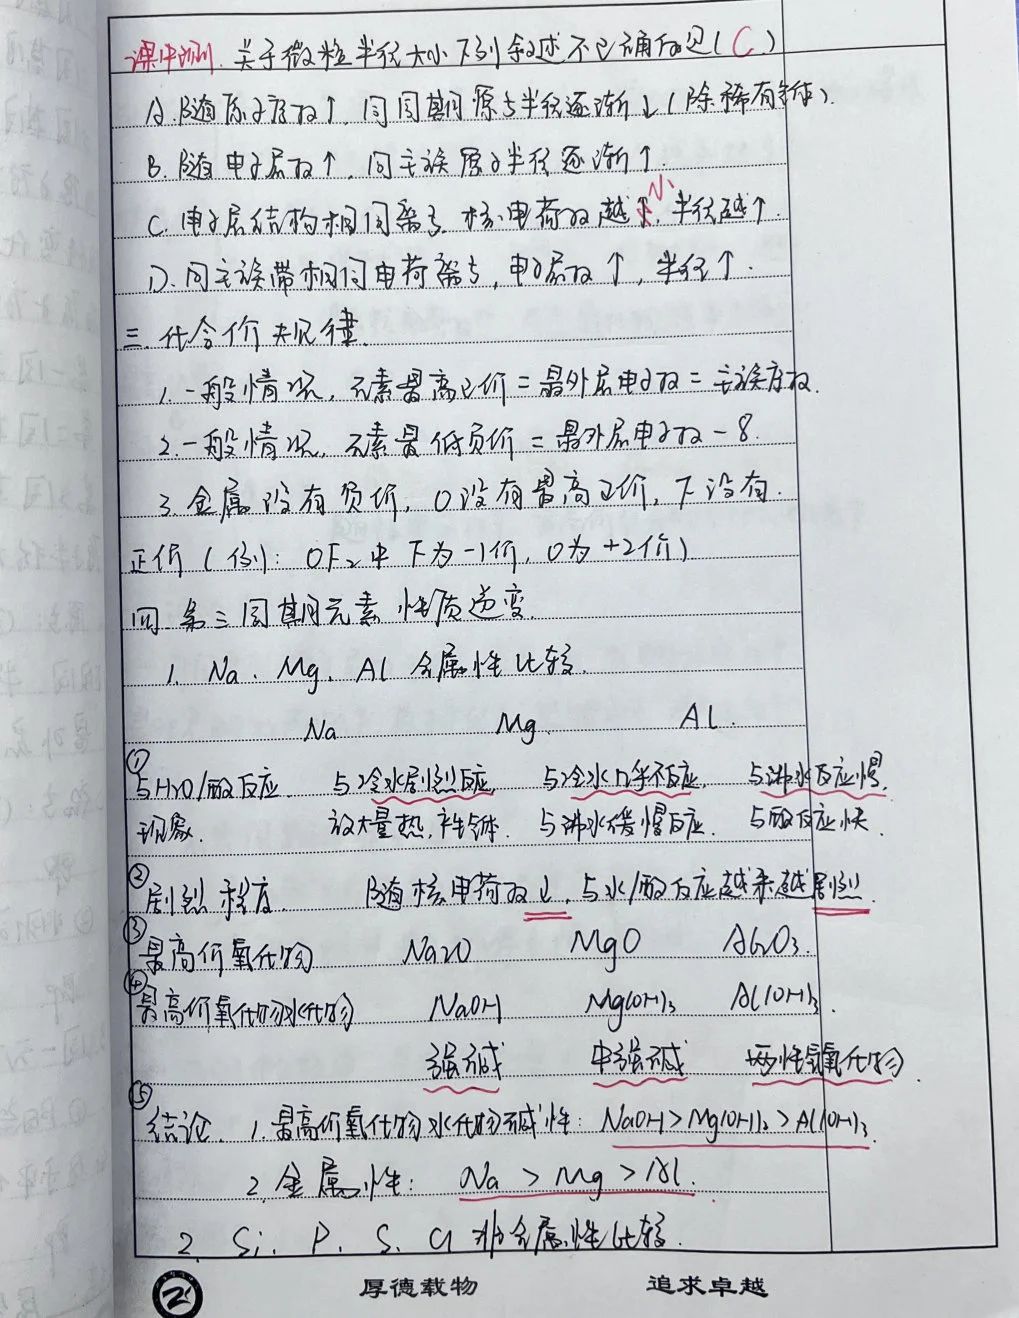 课中预测. 关于微粒半径大小下列叙述不正确的是(C)
A. 随原子序数↑, 同周期原子半径逐渐↓(除稀有气体).
B. 随电子层数↑, 同主族原子半径逐渐↑.
C. 电子层结构相同离子, 核电荷数越↑, 半径越↑. 小
D. 同主族带相同电荷离子, 电子层数↑, 半径↑.
三. 化合价规律.
1. 一般情况, 元素最高正价=最外层电子数=主族序数.
2. 一般情况, 元素最低负价=最外层电子数-8.
3. 金属没有负价, O没有最高正价, F没有.
正价(例: OF₂中F为-1价, O为+2价)
四. 第三周期元素性质递变.
1. Na、Mg、Al金属性比较.
Na Mg. Al.
①与H₂O/酸反应 与冷水剧烈反应, 与冷水几乎不反应, 与沸水反应慢,
现象. 放大量热, 产生气体. 与沸水缓慢反应. 与酸反应快.
②剧烈程度 随核电荷数↓, 与水/酸反应越来越剧烈.
③最高价氧化物 Na₂O MgO Al₂O₃.
④最高价氧化物水化物 NaOH Mg(OH)₃ Al(OH)₃.
强碱 中强碱 两性氢氧化物.
⑤结论. 1. 最高价氧化物水化物碱性: NaOH>Mg(OH)₂>Al(OH)₃.
2. 金属性: Na>Mg>Al.
2. Si、P、S、Cl非金属性比较.
2 厚德载物 追求卓越